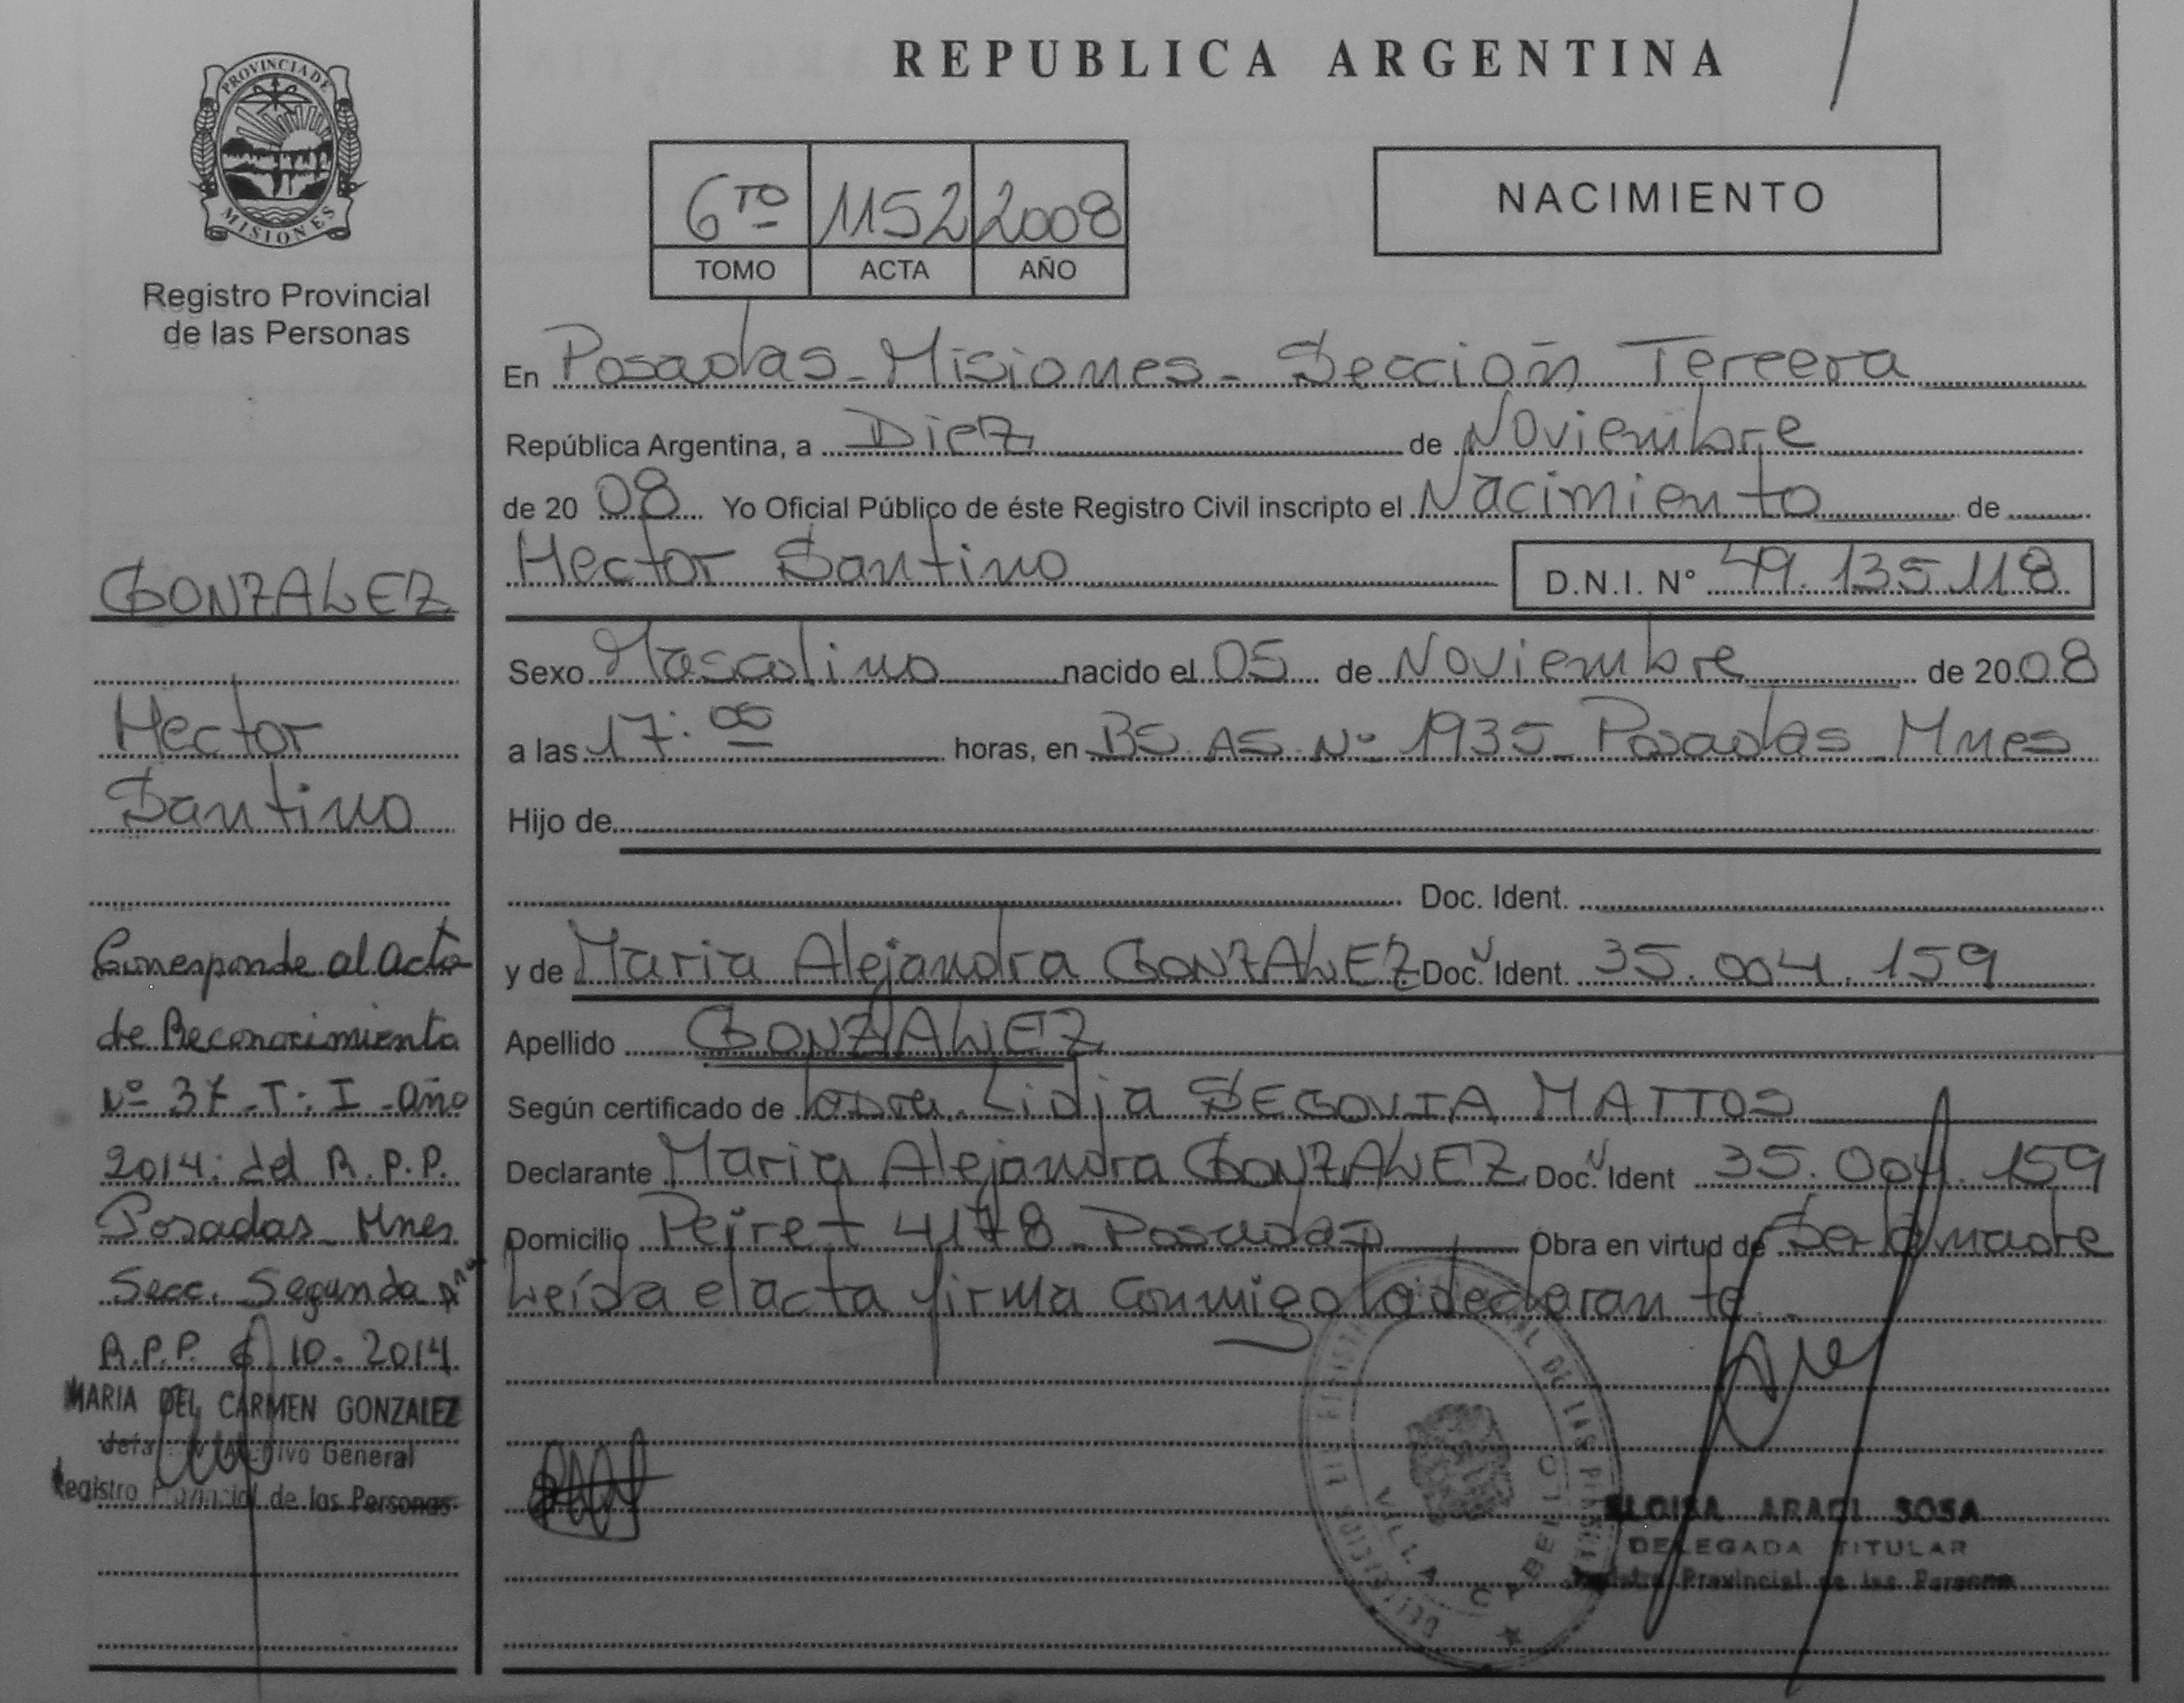 PROVINCIA DE
MISIONES
Registro Provincial
de las Personas
GONZALEZ
Hector
Santino
Corresponde al acta
de Reconocimiento
Nº 37 - T: I - Año
2014: del R.P.P.
Posadas - Mnes
Secc. Segunda
R.P.P. 10 - 2014
MARIA DEL CARMEN GONZALEZ
Archivo General
Registro Provincial de las Personas
REPUBLICA ARGENTINA
6TO 1152 2008
TOMO ACTA AÑO
NACIMIENTO
En Posadas - Misiones - Sección Tercera
República Argentina, a Diez de Noviembre
de 20 08 Yo Oficial Público de éste Registro Civil inscripto el Nacimiento de
Hector Santino D.N.I. N° 49.135.118
Sexo Masculino nacido el 05 de Noviembre de 20 08
a las 17:05 horas, en BS. AS. Nº 1935 - Posadas - Mnes
Hijo de
Doc. Ident.
y de Maria Alejandra GONZALEZ Doc. Ident. 35.004.159
Apellido GONZALEZ
Según certificado de Lidia SEGOVIA MATTOS
Declarante Maria Alejandra GONZALEZ Doc. Ident 35.004.159
Domicilio Peiret 4178 - Posadas Obra en virtud de Ser la madre
Leída el acta firma conmigo la declarante.
VILLA CABELLO
ELOISA ARACI SOSA
DELEGADA TITULAR
Registro Provincial de las Personas